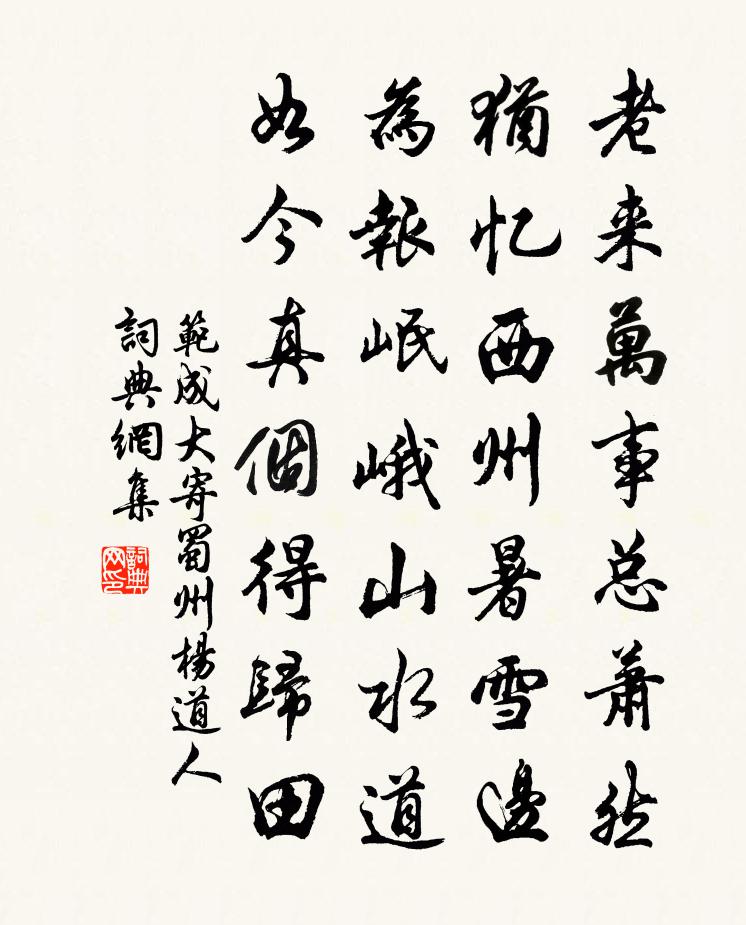 老来萬事总萧然
猶忆西州暑雪邊
為報岷峨山水道
如今真個得歸田
範成大寄蜀州楊道人
詞典網集
詞典网印